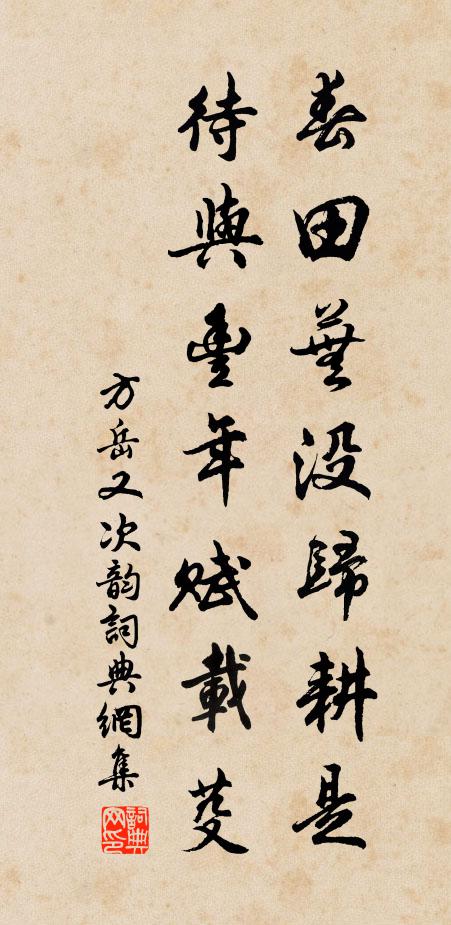 春田蕪没歸耕是
待與豐年賦載芟
方岳又次韵詞典網集
詞典网印